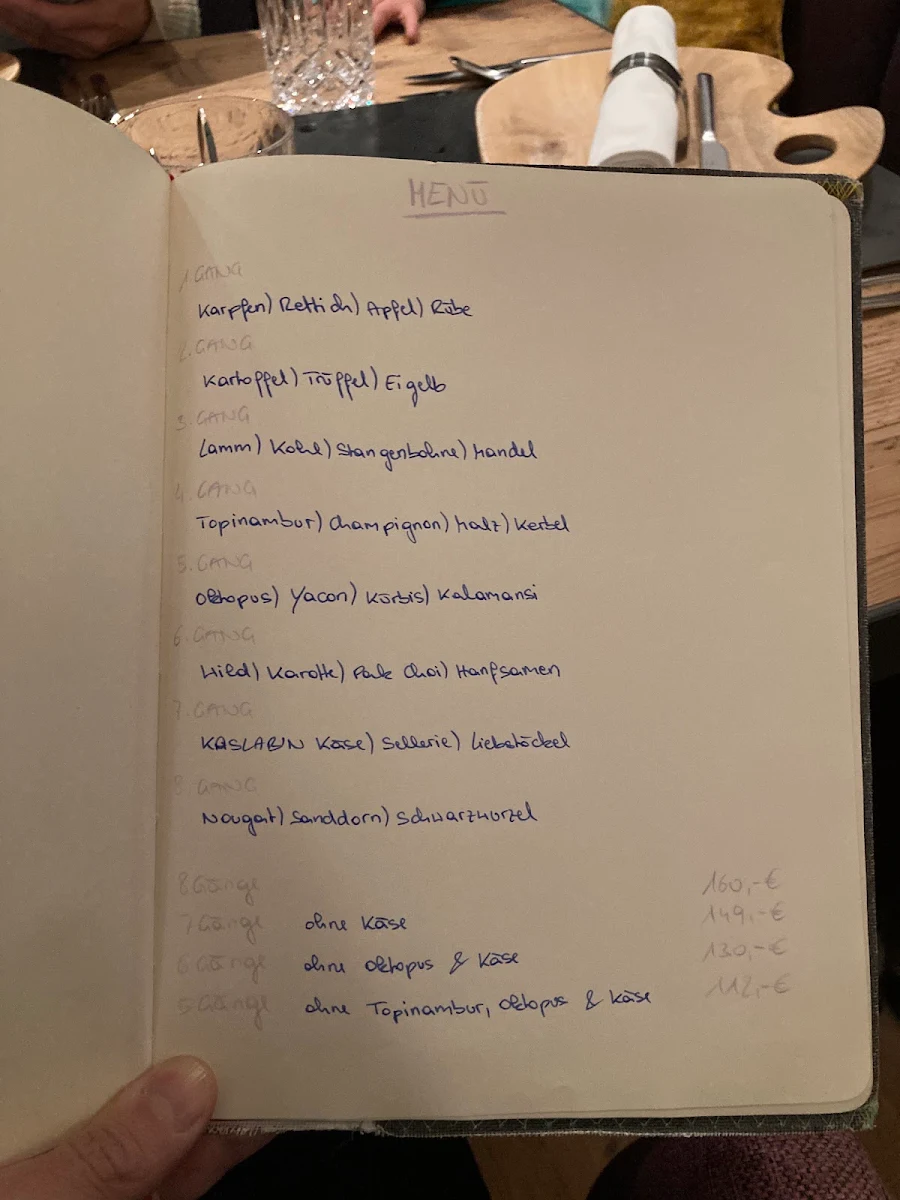 MENÜ
1. GANG
Karpfen) Rettich) Apfel) Rübe
2. GANG
Kartoffel) Trüffel) Eigelb
3. GANG
Lamm) Kohl) Stangenbohne) Mandel
4. GANG
Topinambur) Champignon) Malz) Kerbel
5. GANG
Oktopus) Yacon) Kürbis) Kalamansi
6. GANG
Wild) Karotte) Pak Choi) Hanfsamen
7. GANG
KASLAB'N Käse) Sellerie) Liebstöckel
8. GANG
Nougat) Sanddorn) Schwarzwurzel
8 Gänge 160,-€
7 Gänge ohne Käse 149,-€
6 Gänge ohne Oktopus & Käse 130,-€
5 Gänge ohne Topinambur, Oktopus & Käse 112,-€